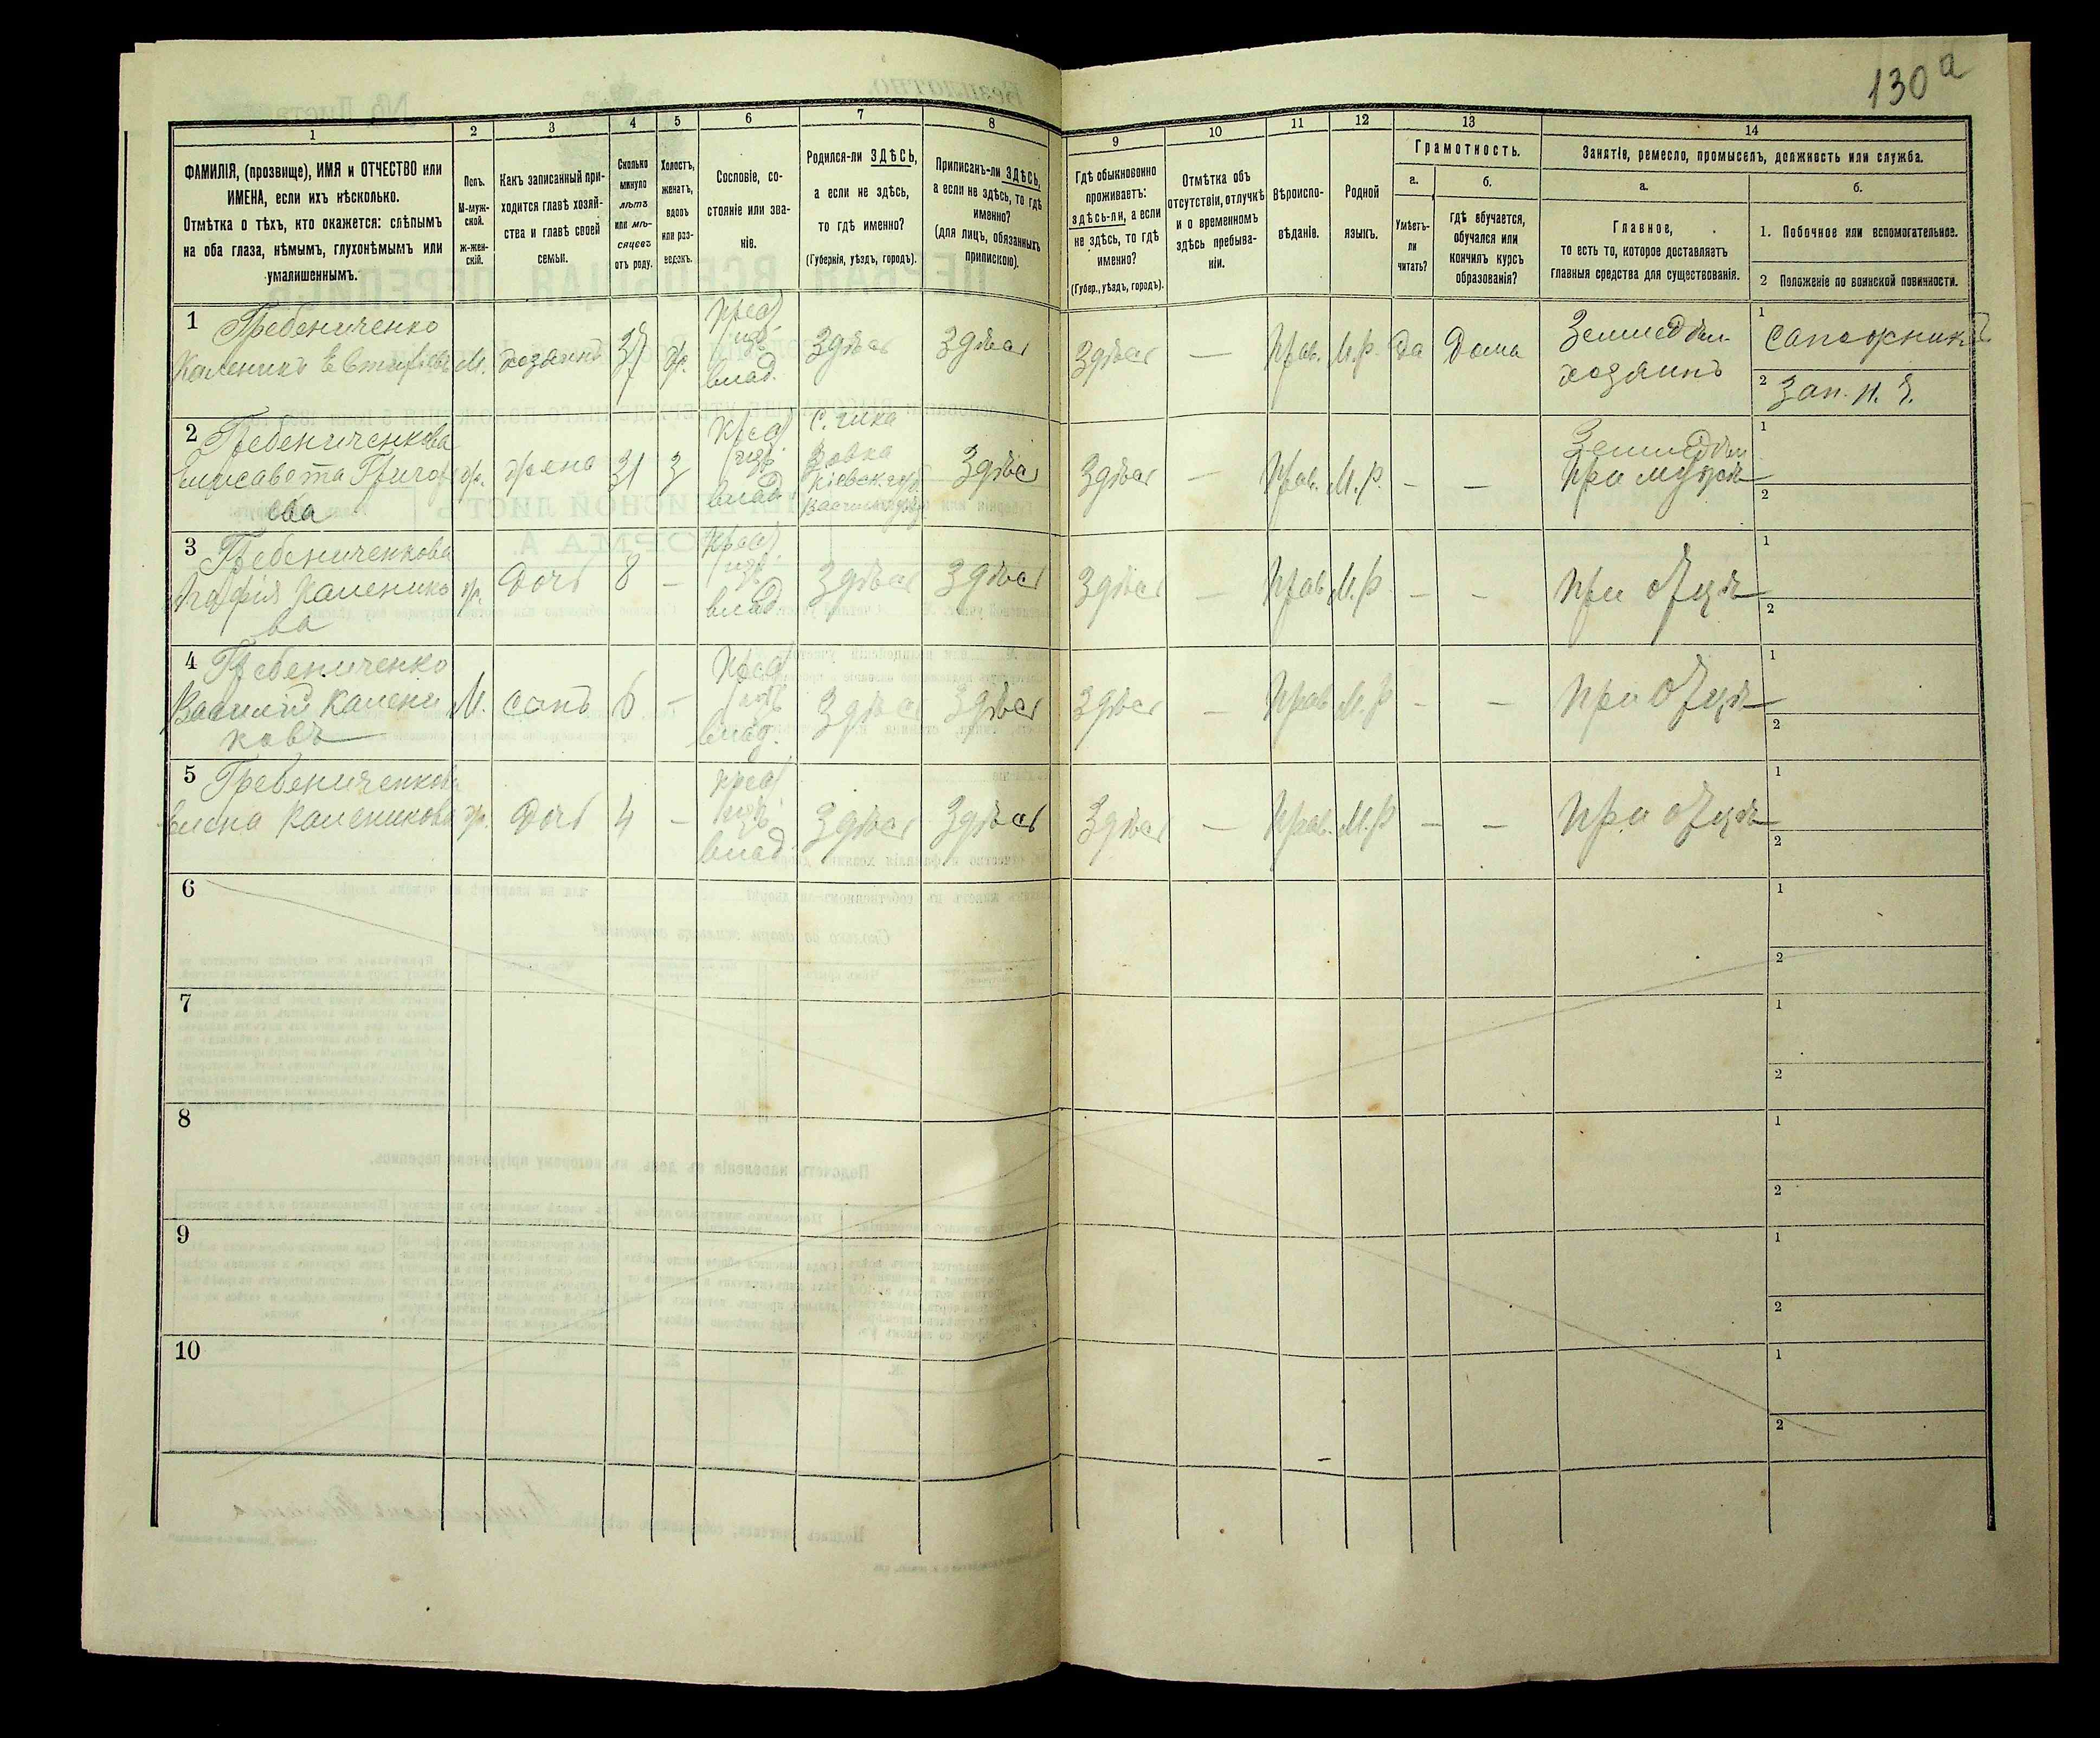 130а
1 2 3 4 5 6 7 8 9 10 11 12 13 14
ФАМИЛІЯ, (прозвище), ИМЯ и ОТЧЕСТВО или
ИМЕНА, если ихъ нѣсколько.
Отмѣтка о тѣхъ, кто окажется: слѣпымъ
на оба глаза, нѣмымъ, глухонѣмымъ или
умалишеннымъ.
Полъ.
М-муж-
ской.
ж-жен-
скій.
Какъ записанный при-
ходится главѣ хозяй-
ства и главѣ своей
семьи.
Сколько
минуло
лѣтъ
или мѣ-
сяцевъ
отъ роду.
Холостъ,
женатъ,
вдовъ
или раз-
веденъ.
Сословіе, со-
стояніе или зва-
ніе.
Родился-ли ЗДѢСЬ,
а если не здѣсь,
то гдѣ именно?
(Губернія, уѣздъ, городъ).
Приписанъ-ли ЗДѢСЬ,
а если не здѣсь, то гдѣ
именно?
(для лицъ, обязанныхъ
припискою).
Гдѣ обыкновенно
проживаетъ:
здѣсь-ли, а если
не здѣсь, то гдѣ
именно?
(Губер., уѣздъ, городъ).
Отмѣтка объ
отсутствіи, отлучкѣ
и о временномъ
здѣсь пребыва-
ніи.
Вѣроиспо-
вѣданіе.
Родной
языкъ.
Грамотность.
а.
Умѣетъ-
ли
читать?
б.
гдѣ обучается,
обучался или
кончилъ курсъ
образованія?
Занятіе, ремесло, промыселъ, должность или служба.
а.
Главное,
то есть то, которое доставляетъ
главныя средства для существованія.
б.
1. Побочное или вспомогательное.
2 Положеніе по воинской повинности.
1 Гребениченко
Каленикъ Евстафіевъ М. хозяинъ 37 ж. Крест.
изъ
влад. Здѣсь Здѣсь Здѣсь — Прав. М.р. Да Дома Земледѣл.
хозяинъ 1 Сапожник
2 Зап. н. ч.
2 Гребениченкова
Елисавета Григор
ова ж. жена 31 З Крест
изъ
влад. С. Чика
Ровка
Кіевск. губ
Здѣсь Здѣсь — Прав. М.р. — — Земледѣл
При мужѣ 1
2
3 Гребениченкова
Агафія Каленико
ва ж. Дочь 8 — Крест
изъ
влад Здѣсь Здѣсь Здѣсь — Прав М.р — — При отцѣ 1
2
4 Гребениченко
Василій Калени
ковъ М. Сынъ 6 — Крест
изъ
влад. Здѣсь Здѣсь Здѣсь — Прав М.р — — При отцѣ 1
2
5 Гребениченкова
Елена Каленикова ж. Дочь 4 — Крест
изъ
влад. Здѣсь Здѣсь Здѣсь — Прав. М.р — — При отцѣ 1
2
6 1
2
7 1
2
8 1
2
9 1
2
10 1
2